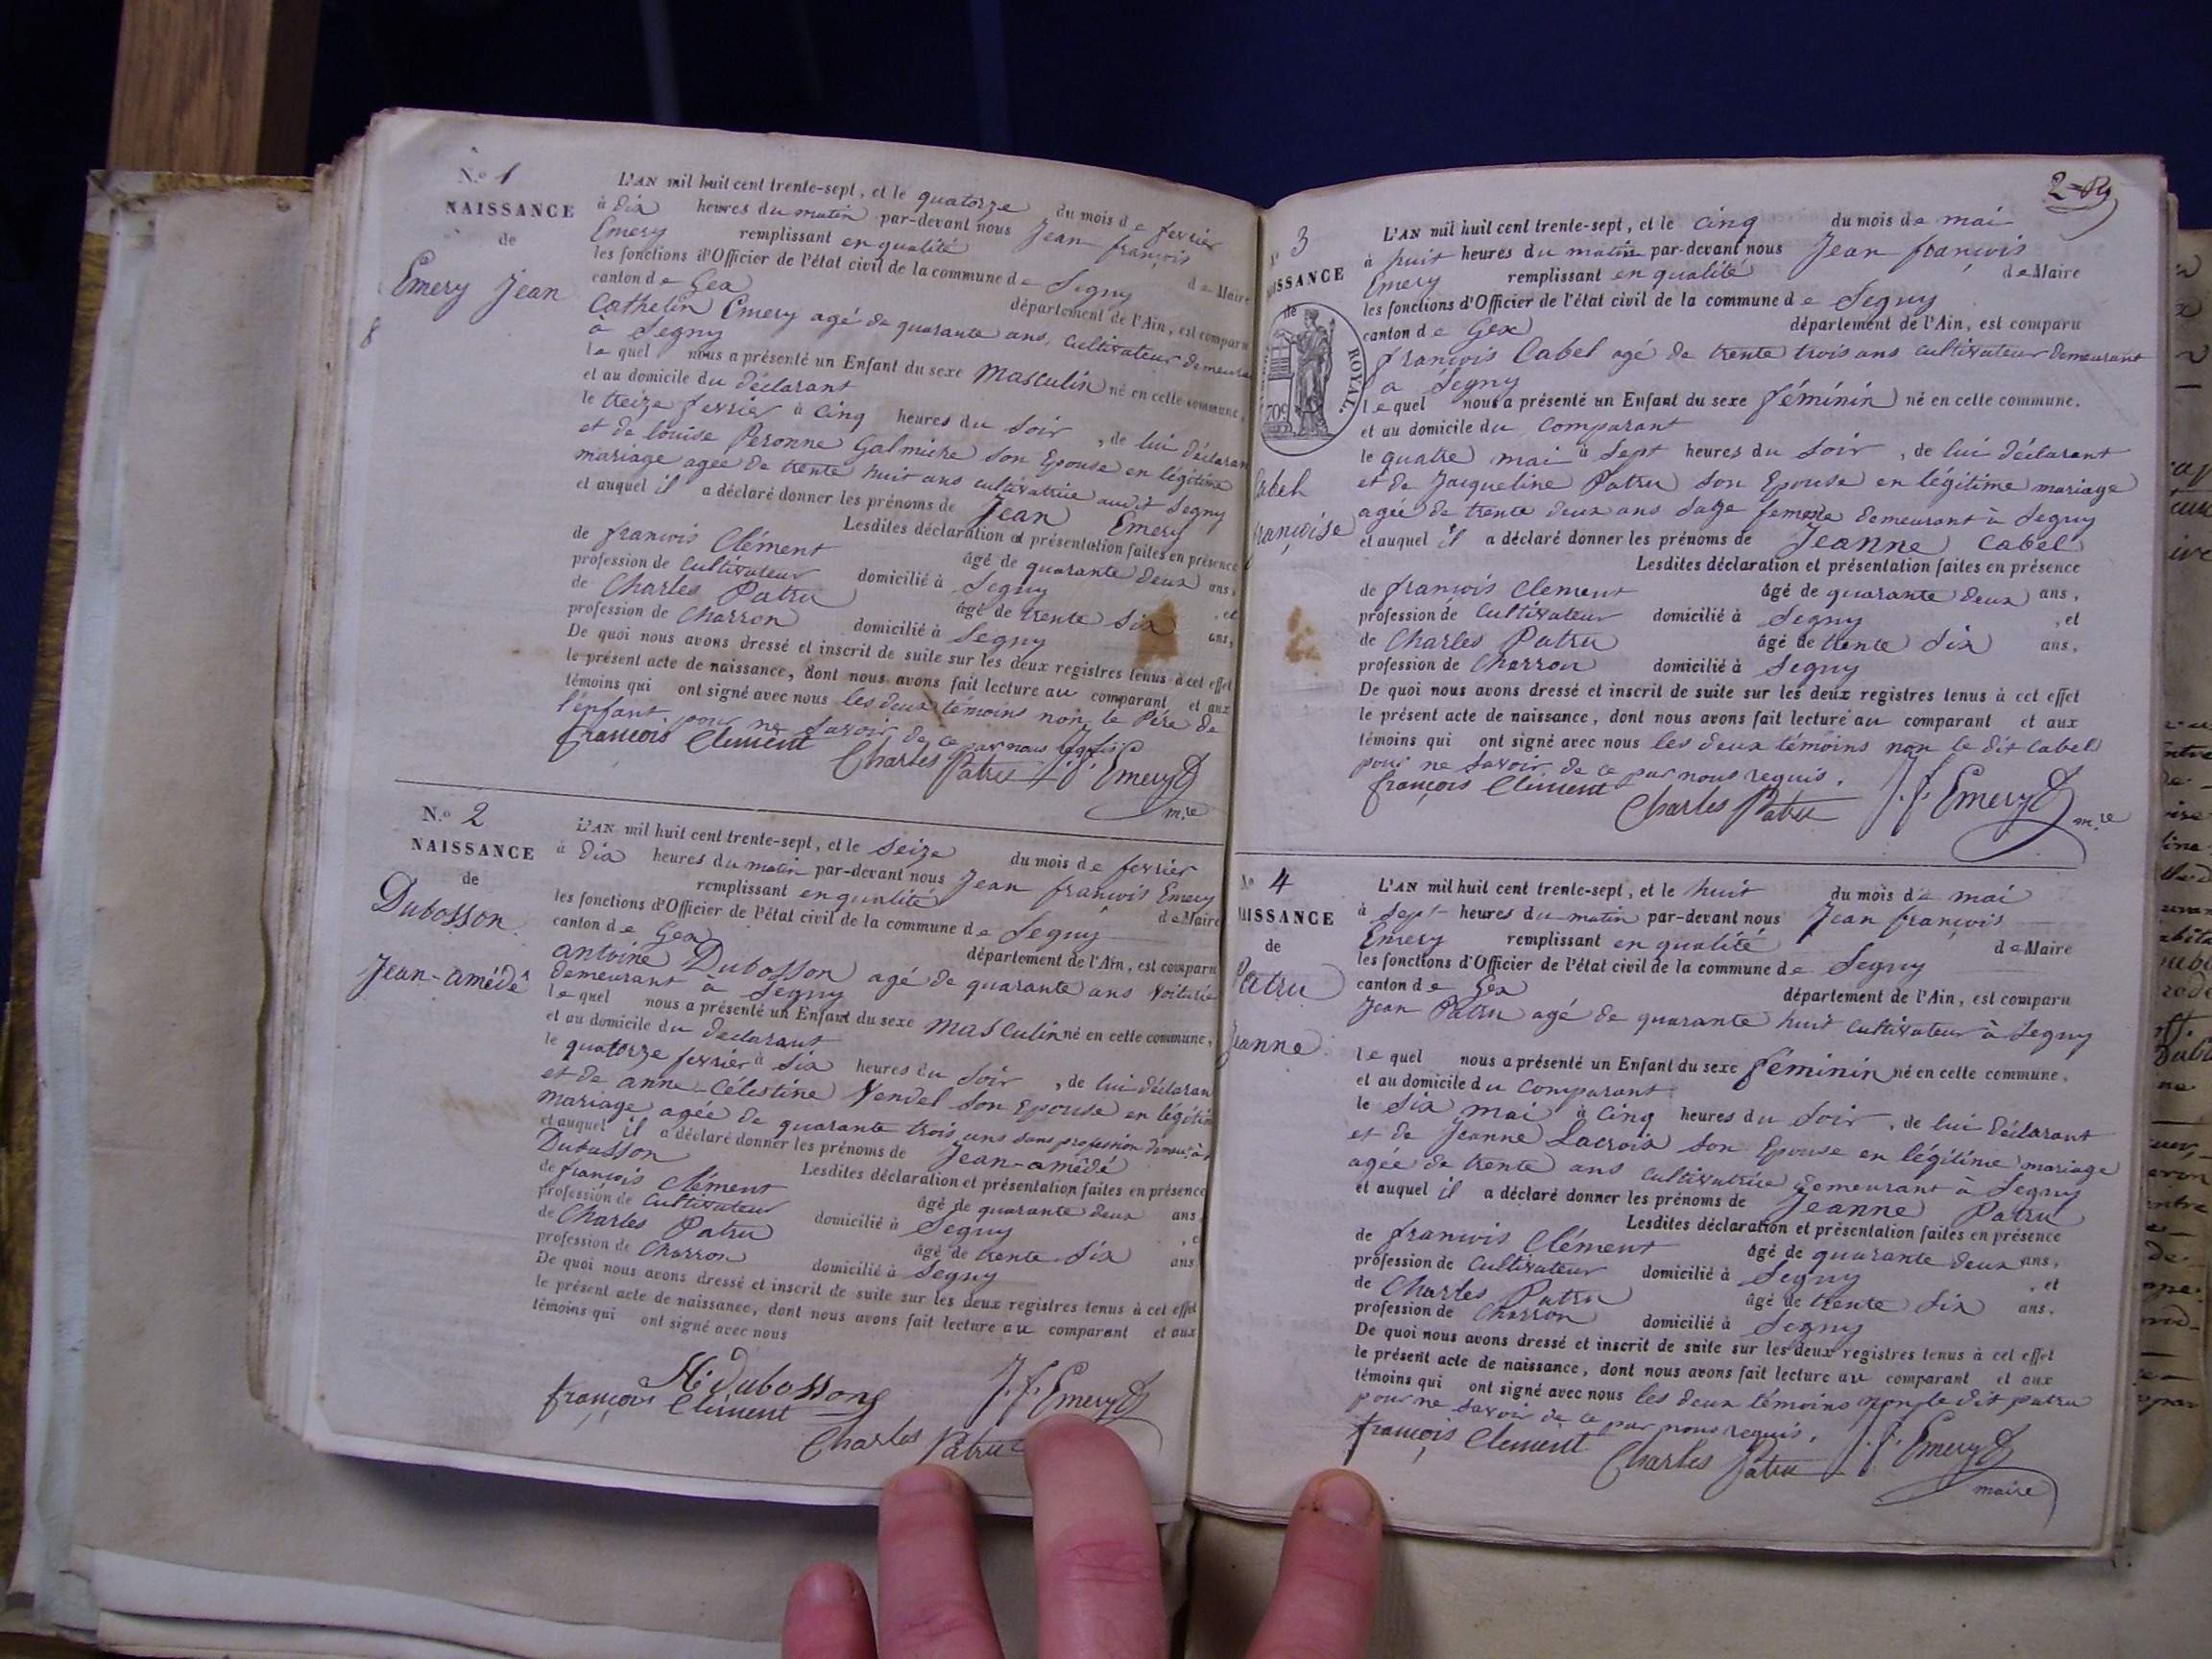 N.o 1
NAISSANCE
de
Emery Jean
L'AN mil huit cent trente-sept, et le quatorze du mois de fevrier
à dix heures du matin par-devant nous Jean françois
Emery remplissant en qualité de Maire
les fonctions d'Officier de l'état civil de la commune de Segny
canton de Gex département de l'Ain, est comparu
Cathelin Emery agé de quarante ans, cultivateur demeurant
a Segny
lequel nous a présenté un Enfant du sexe masculin né en cette commune,
et au domicile du déclarant
le treize fevrier à cinq heures du soir, de lui déclarant
et de louise Peronne Galmiche son Epouse en légitime
mariage agée de trente huit ans cultivatrice audit Segny
et auquel il a déclaré donner les prénoms de Jean Emery
Lesdites déclaration et présentation faites en présence
de françois Clément âgé de quarante deux ans,
profession de cultivateur domicilié à Segny, et
de Charles Patru âgé de trente six ans,
profession de Charron domicilié à Segny
De quoi nous avons dressé et inscrit de suite sur les deux registres tenus à cet effet
le présent acte de naissance, dont nous avons fait lecture au comparant et aux
témoins qui ont signé avec nous les deux témoins non le Père de
l'enfant pour ne savoir de ce par nous
françois Clement Charles Patru J. f. Emery
m.re
N.o 2
NAISSANCE
de
Dubosson
Jean-amédé
L'AN mil huit cent trente-sept, et le seize du mois de fevrier
à dix heures du matin par-devant nous Jean françois Emery
remplissant en qualité de Maire
les fonctions d'Officier de l'état civil de la commune de Segny
canton de Gex département de l'Ain, est comparu
antoine Dubosson agé de quarante ans voiturié
demeurant à Segny
lequel nous a présenté un Enfant du sexe masculin né en cette commune,
et au domicile du declarant
le quatorze fevrier à six heures du soir, de lui déclarant
et de anne-Celestine Vendel son Epouse en légitim
mariage agée de quarante trois ans sans profession
et auquel il a déclaré donner les prénoms de Jean-amédé
Dubosson
Lesdites déclaration et présentation faites en présence
de françois Clément âgé de quarante deux ans
profession de cultivateur domicilié à Segny
de Charles Patru âgé de trente six ans
profession de Charron domicilié à Segny
De quoi nous avons dressé et inscrit de suite sur les deux registres tenus à cet effet
le présent acte de naissance, dont nous avons fait lecture au comparant et aux
témoins qui ont signé avec nous
Dubosson J. f. Emery
françois Clement
Charles Patru
3
ISSANCE
de
ROYAL.
Cabel
françoise
L'AN mil huit cent trente-sept, et le cinq du mois de mai
à huit heures du matin par-devant nous Jean françois
Emery remplissant en qualité de Maire
les fonctions d'Officier de l'état civil de la commune de Segny
canton de Gex département de l'Ain, est comparu
françois Cabel agé de trente trois ans cultivateur demeurant
a Segny
lequel nous a présenté un Enfant du sexe féminin né en cette commune.
et au domicile du comparant
le quatre mai à sept heures du soir, de lui déclarant
et de Jacqueline Patru son Epouse en légitime mariage
agée de trente deux ans Sage femme demeurant à Segny
et auquel il a déclaré donner les prénoms de Jeanne Cabel
Lesdites déclaration et présentation faites en présence
de françois Clement âgé de quarante deux ans,
profession de cultivateur domicilié à Segny, et
de Charles Patru âgé de trente six ans,
profession de Charron domicilié à Segny
De quoi nous avons dressé et inscrit de suite sur les deux registres tenus à cet effet
le présent acte de naissance, dont nous avons fait lecture au comparant et aux
témoins qui ont signé avec nous les deux témoins non le dit Cabel
pour ne savoir de ce par nous requis.
françois Clement Charles Patru J. f. Emery
m.re
No 4
AISSANCE
de
Patru
Jeanne
L'AN mil huit cent trente-sept, et le huit du mois de mai
à sept heures du matin par-devant nous Jean françois
Emery remplissant en qualité de Maire
les fonctions d'Officier de l'état civil de la commune de Segny
canton de Gex département de l'Ain, est comparu
Jean Patru agé de quarante huit cultivateur à Segny
lequel nous a présenté un Enfant du sexe féminin né en cette commune,
et au domicile du comparant
le six mai à cinq heures du soir, de lui déclarant
et de Jeanne Lacroix son Epouse en légitime mariage
agée de trente ans cultivatrice demeurant à Segny
et auquel il a déclaré donner les prénoms de Jeanne Patru
Lesdites déclaration et présentation faites en présence
de françois Clément âgé de quarante deux ans,
profession de cultivateur domicilié à Segny, et
de Charles Patru âgé de trente six ans,
profession de Charron domicilié à Segny
De quoi nous avons dressé et inscrit de suite sur les deux registres tenus à cet effet
le présent acte de naissance, dont nous avons fait lecture au comparant et aux
témoins qui ont signé avec nous les deux témoins non le dit patru
pour ne savoir de ce par nous requis.
françois Clement Charles Patru J. f. Emery
maire